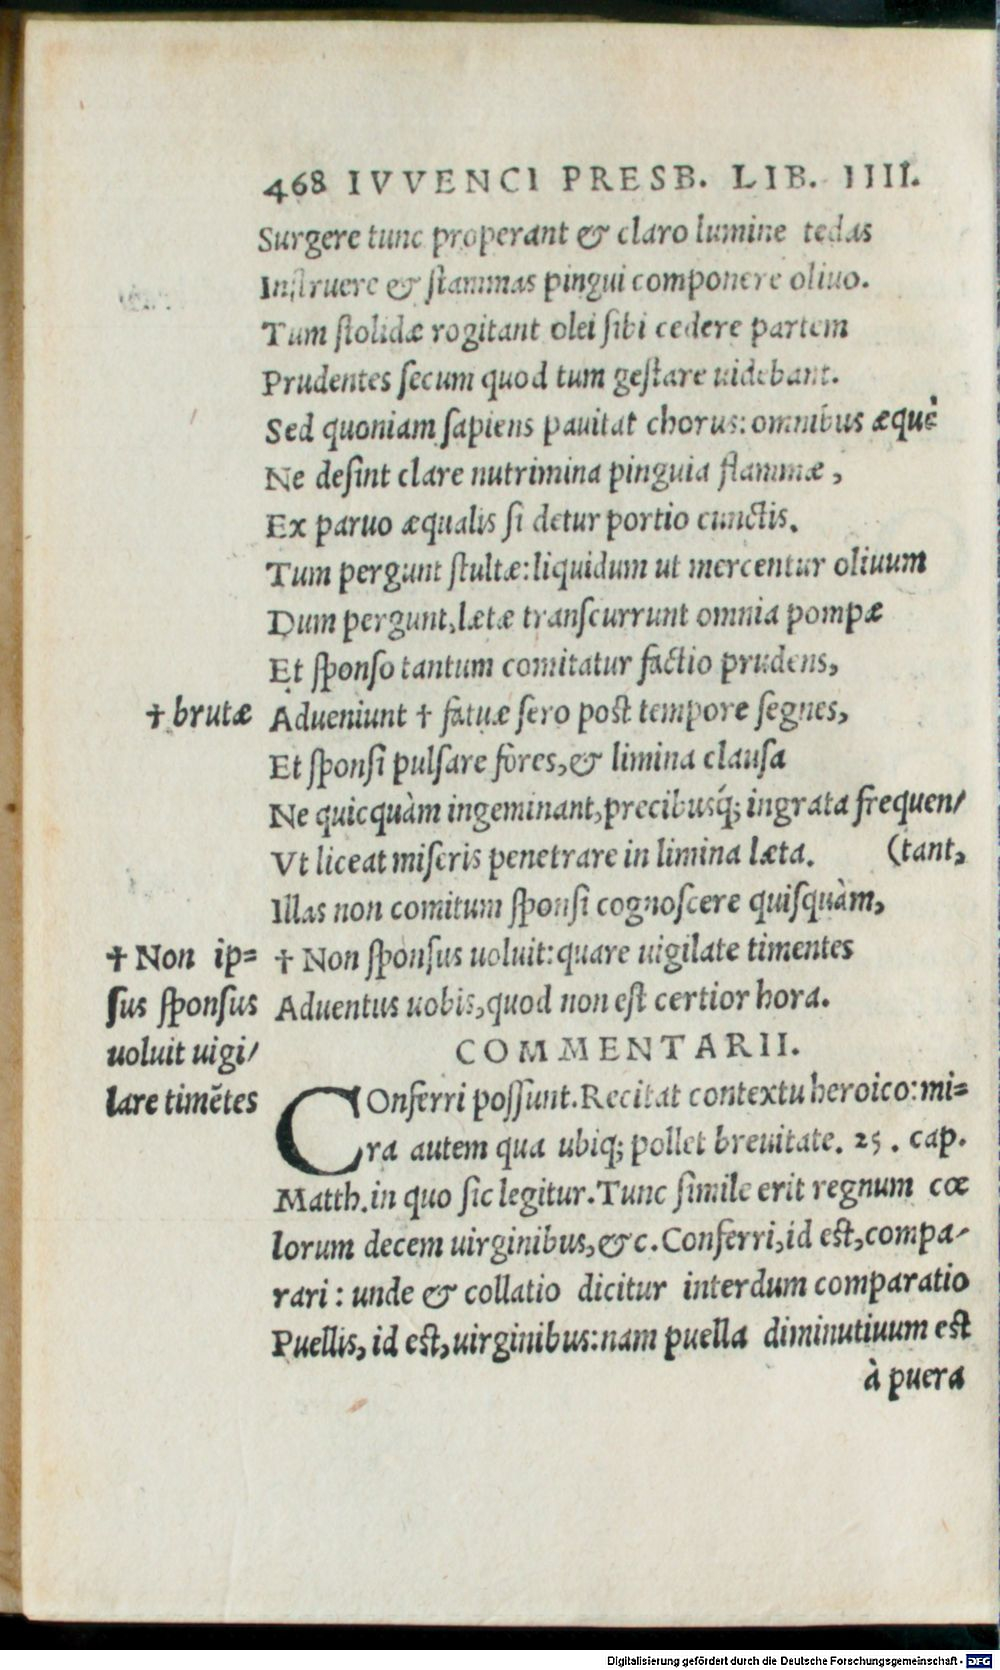 468 IVVENCI PRESB. LIB. IIII.
Surgere tunc properant & claro lumine tedas
Instruere & flammas pingui componere oliuo.
Tum stolidæ rogitant olei sibi cedere partem
Prudentes secum quod tum gestare uidebant.
Sed quoniam sapiens pauitat chorus: omnibus æquè
Ne desint clare nutrimina pinguia flammæ,
Ex paruo æqualis si detur portio cunctis.
Tum pergunt stultæ: liquidum ut mercentur oliuum
Dum pergunt, lætæ transcurrunt omnia pompæ
Et sponso tantum comitatur factio prudens,
† brutæ Adueniunt † fatuæ sero post tempore segnes,
Et sponsi pulsare fores, & limina clausa
Ne quicquàm ingeminant, precibusq́; ingrata frequen/
Vt liceat miseris penetrare in limina læta. (tant,
Illas non comitum sponsi cognoscere quisquàm,
† Non sponsus uoluit: quare uigilate timentes
Aduentus uobis, quod non est certior hora.
† Non ip=
sus sponsus
uoluit uigi/
lare timētes
COMMENTARII.
COnferri possunt. Recitat contextu heroico: mi=
ra autem qua ubiq; pollet breuitate. 25. cap.
Matth. in quo sic legitur. Tunc simile erit regnum cœ
lorum decem uirginibus, &c. Conferri, id est, compa-
rari: unde & collatio dicitur interdum comparatio
Puellis, id est, uirginibus: nam puella diminutiuum est
à puera
Digitalisierung gefördert durch die Deutsche Forschungsgemeinschaft - DFG